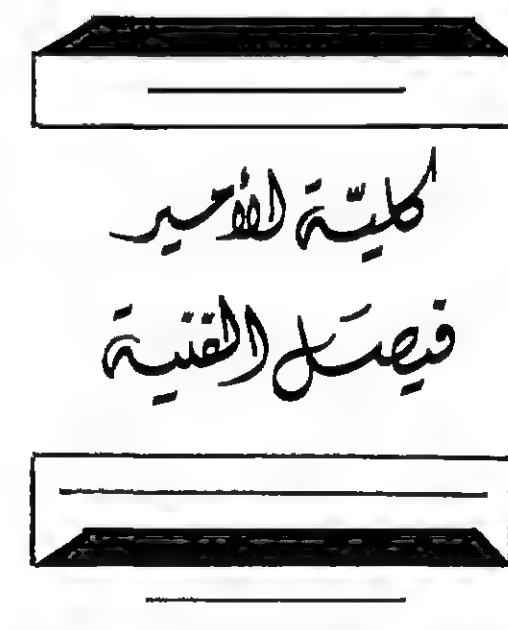 كليّة الأمير
فيصَل الفنية